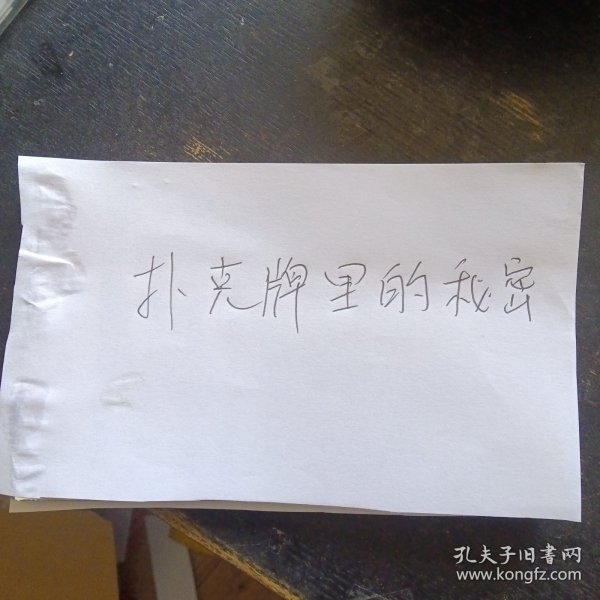 扑克牌里的秘密
孔夫子旧書网
www.kongfz.com